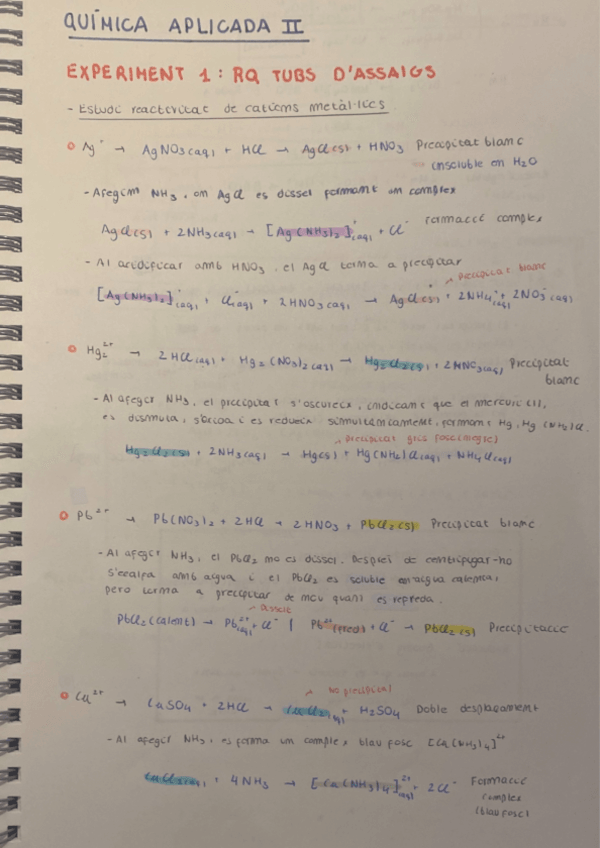 QUÍMICA APLICADA II
EXPERIMENT 1: RQ TUBS D'ASSAIGS
- Estudi reactivitat de cations metàl·lics
Ag⁺ → AgNO3(aq) + HCl → AgCl(s) + HNO3 Precipitat blanc
insoluble en H2O
- Afegim NH3, on AgCl es dissol formant un complex
AgCl(s) + 2NH3(aq) → [Ag(NH3)2]⁺(aq) + Cl⁻ Formació complex
- Al acidificar amb HNO3, el AgCl torna a precipitar
precipitat blanc
[Ag(NH3)2]⁺(aq) + Cl⁻(aq) + 2HNO3(aq) → AgCl(s) + 2NH4⁺(aq) + 2NO3⁻(aq)
Hg2²⁺ → 2HCl(aq) + Hg2(NO3)2(aq) → Hg2Cl2(s) + 2HNO3(aq) Precipitat
blanc
- Al afegir NH3, el precipitat s'oscureix, indicant que el mercuri (I),
es dismuta, s'oxida i es redueix simultàneament, formant Hg, Hg(NH2)Cl.
precipitat gris fosc (negre)
Hg2Cl2(s) + 2NH3(aq) → Hg(s) + Hg(NH2)Cl(aq) + NH4Cl(aq)
Pb²⁺ → Pb(NO3)2 + 2HCl → 2HNO3 + PbCl2(s) Precipitat blanc
- Al afegir NH3, el PbCl2 no es dissol. Després de centrifugar-ho
s'escalfa amb aigua i el PbCl2 es soluble en aigua calenta,
però torna a precipitar de nou quan es refreda.
PbCl2(calent) → Pb²⁺(aq) + Cl⁻ | Pb²⁺(fred) + Cl⁻ → PbCl2(s) Precipitació
no precipita
Cu²⁺ → CuSO4 + 2HCl → CuCl2(aq) + H2SO4 Doble desplaçament
- Al afegir NH3, es forma un complex blau fosc [Cu(NH3)4]²⁺
CuCl2(aq) + 4NH3 → [Cu(NH3)4]²⁺(aq) + 2Cl⁻ Formació
complex
(blau fosc)